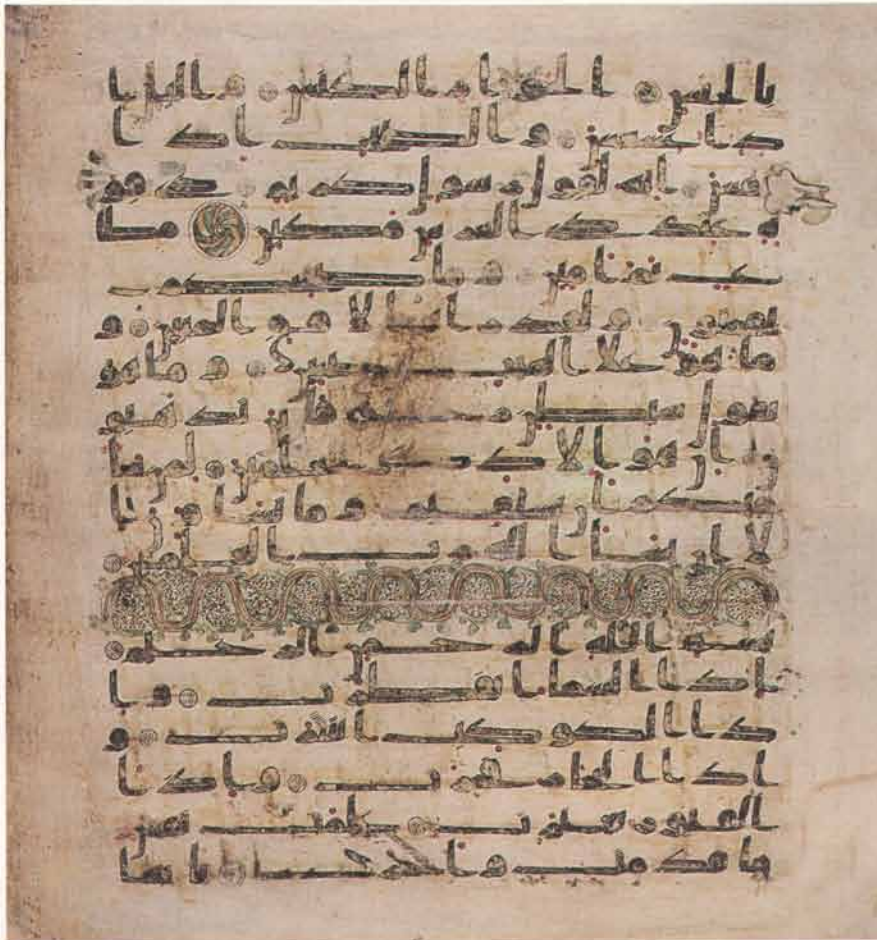 بالخنس الجوار الكنس واليل ا
ذا عسعس والصبح اذا ت
نفس انه لقول رسول كريم ذي قو
ة عند ذي العرش مكين مطا
ع ثم امين وما صاحبكم
بمجنون ولقد راه بالافق المبين و
ما هو على الغيب بضنين وما هو
بقول شيطن رجيم فاين تذهبو
ن ان هو الا ذكر للعلمين لمن شا
منكم ان يستقيم وما تشاون ا
لا ان يشا الله رب العلمين
بسم الله الرحمن الرحيم
اذا السما انفطرت وا
ذا الكوكب انتثرت و
اذا البحار فجرت واذا
القبور بعثرت علمت نفس
ما قدمت واخرت يايها